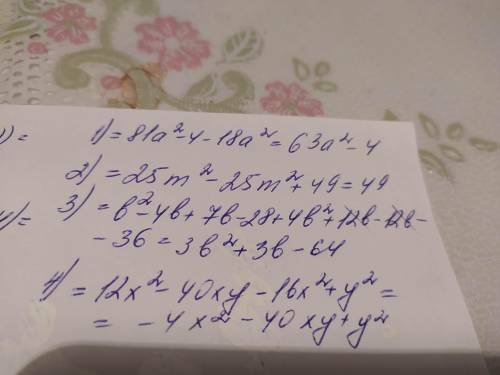 )) = 1) = 81a² - 4 - 18a² = 63a² - 4
2) = 25m² - 25m² + 49 = 49
)= 3) = b² - 4b + 7b - 28 + 4b² + 12b - 12b -
- 36 = 3b² + 3b - 64
4) = 12x² - 40xy - 16x² + y² =
= - 4x² - 40xy + y²